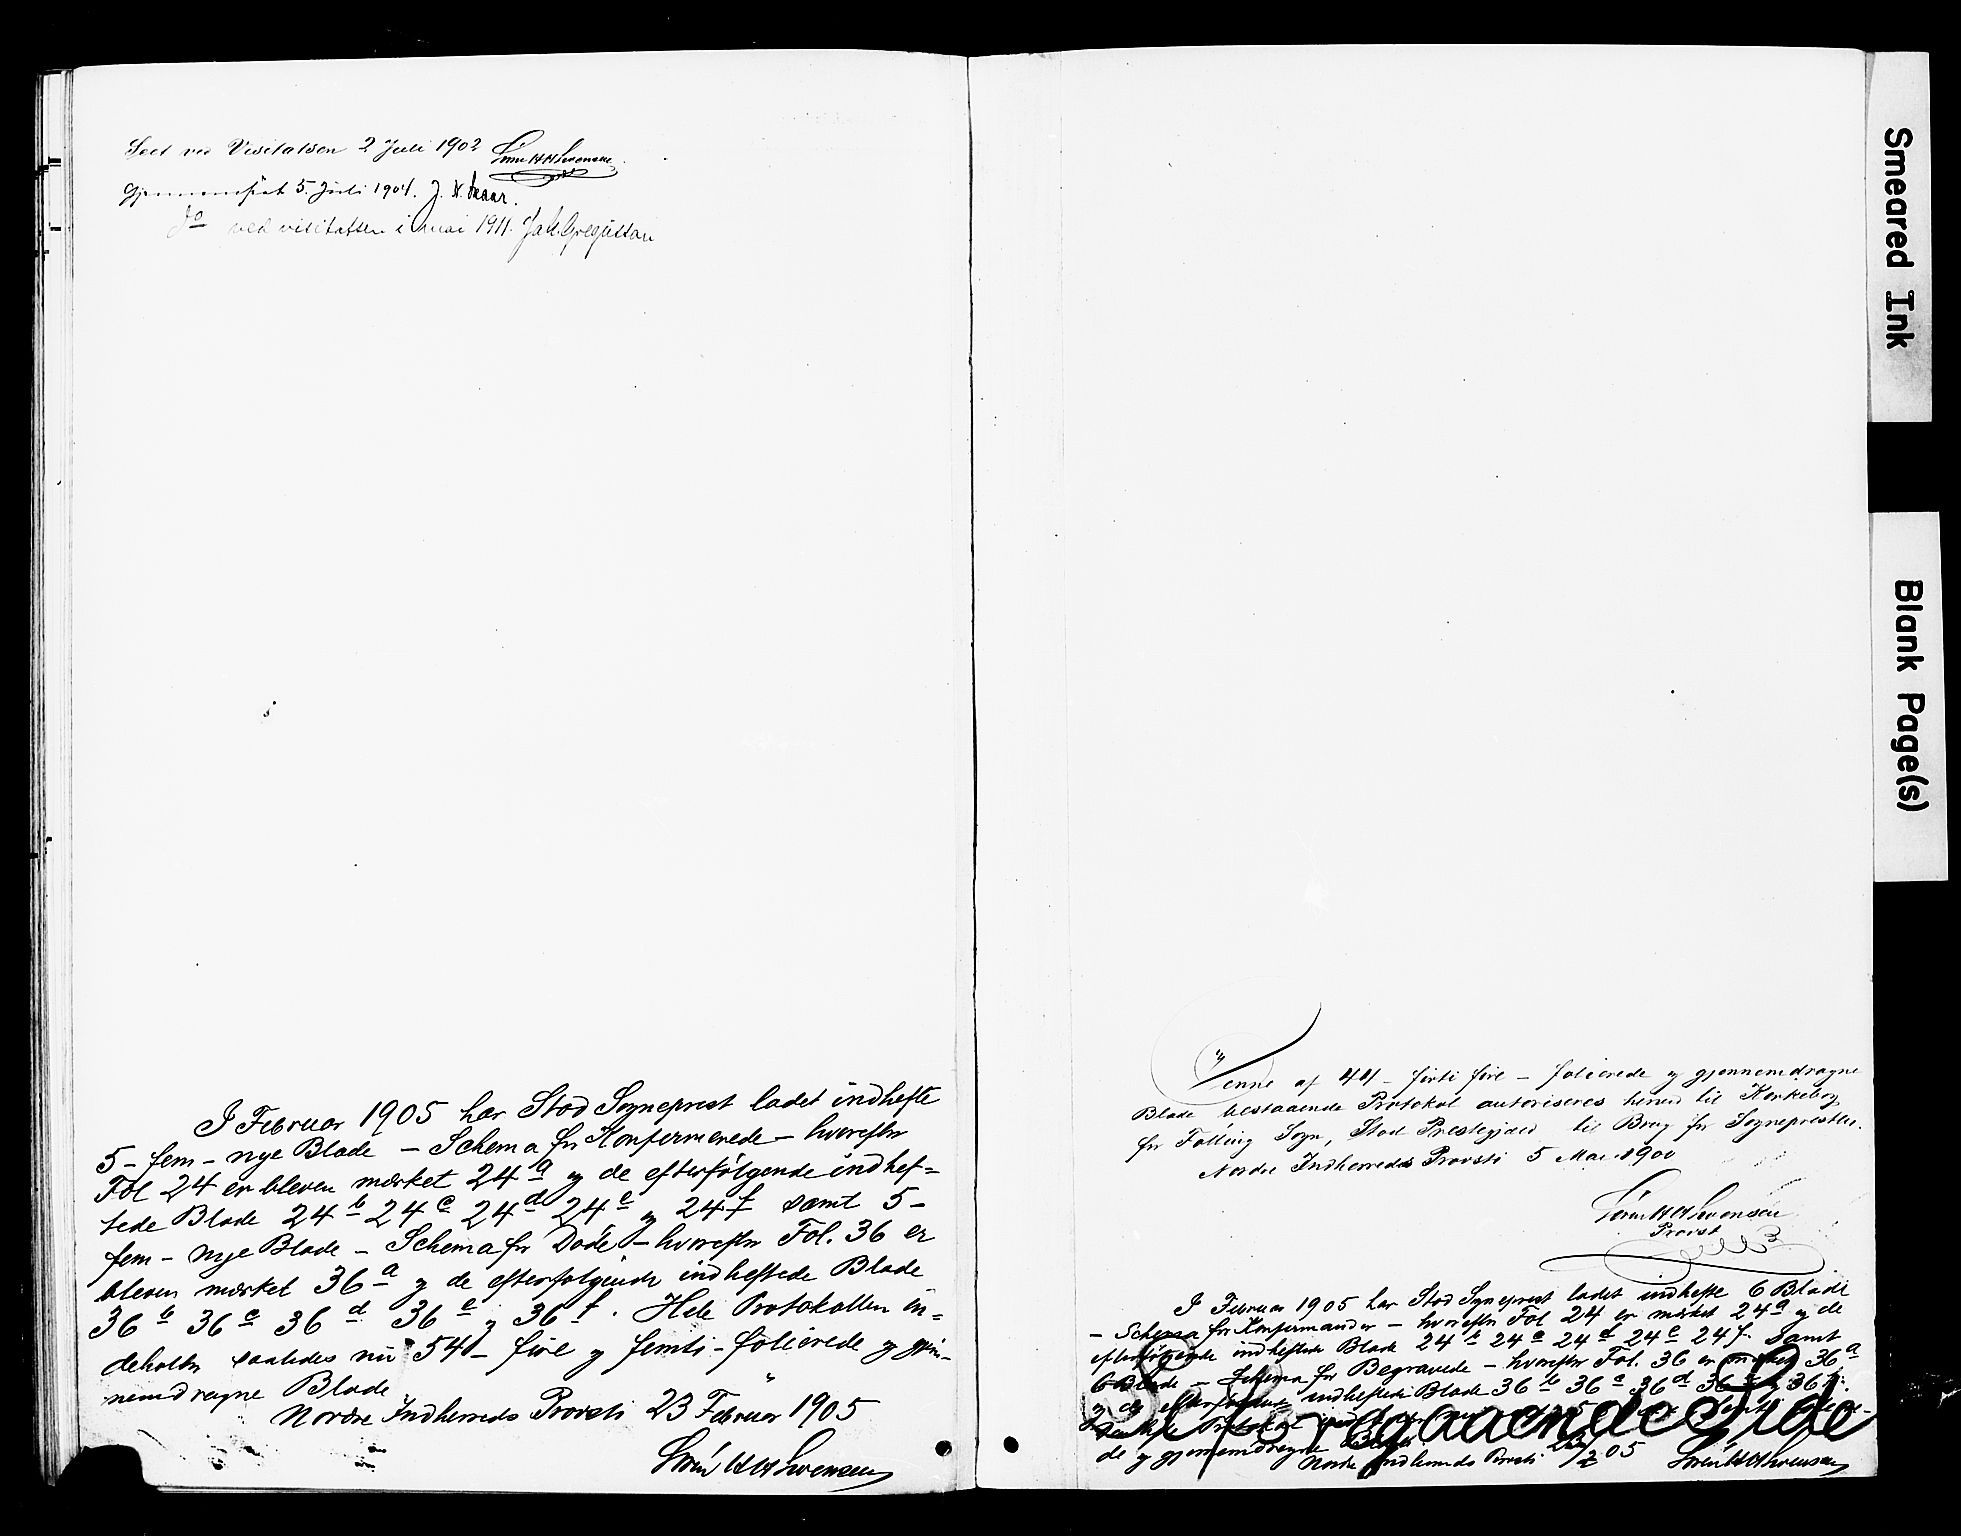 Seet ved Visitatsen 2 Juli 1902 Sørn H H Svensen
Gjennemseet 5. Juli 1904. J. N.
do ved visitatsen i mai 1911. Jak. Gregussen
I Februar 1905 har Stod Sogneprest ladet indhefte
5 - fem - nye Blade - Schema for Konfirmerede - hvorefter
Fol 24 er bleven mærket 24 a og de efterfølgende indhef-
tede Blade 24 b 24 c 24 d 24 e og 24 f samt 5 -
fem - nye Blade - Schema for Døde - hvorefter Fol. 36 er
bleven mærket 36 a og de efterfølgende indheftede Blade
36 b 36 c 36 d 36 e og 36 f. Hele Protokollen in-
deholder saaledes nu 54 - fire og femti - folierede og gjen-
nemdragne Blade
Nordre Indherreds Provsti 23 Februar 1905
Sørn H H Svensen
Denne af 44 - firti fire - folierede og gjennemdragne
Blade bestaaende Protokol autoriseres herved til Kirkebog
for Følling Sogn, Stod Prestegjæld til Brug for Sognepresten.
Nordre Indherreds Provsti 5 Mai 1900
Sørn H H Svensen
Provst
I Februar 1905 har Stod Sogneprest ladet indhefte 6 Blade
- Schema for Konfirmander - hvorefter Fol 24 er mærket 24 a og de
efterfølgende indheftede Blade 24 b 24 c 24 d 24 e 24 f. Samt
6 Blade - Schema for Begravede - hvorefter Fol. 36 er mærket 36 a
og de efterfølgende indheftede Blade 36 b 36 c 36 d 36 e og 36 f.
Se Foregaaende Side
de og gjennemdragne Blade
Nordre Indherreds Provsti 23/2 05
Sørn H H Svensen
Smeared Ink
Blank Page(s)